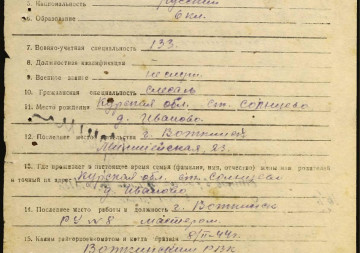 5. Национальность русский
6. Образование 6 кл.
7. Военно-учетная специальность 133.
8. Должностная квалификация
9. Военное звание
10. Гражданская специальность слесарь
11. Место рождения Курская обл. ст. Солнцево
д. Иваново.
12. Последнее место жительства г. Воткинск
83.
13. Где проживает в настоящее время семья (фамилия, имя, отчество) жены или родителей
и точный их адрес Курская обл. ст. Солнцево
д. Иваново
14. Последнее место работы и должность г. Воткинск
РУ №8 мастером.
15. Каким райгорвоенкоматом и когда призван 44г.
Воткинским РВК